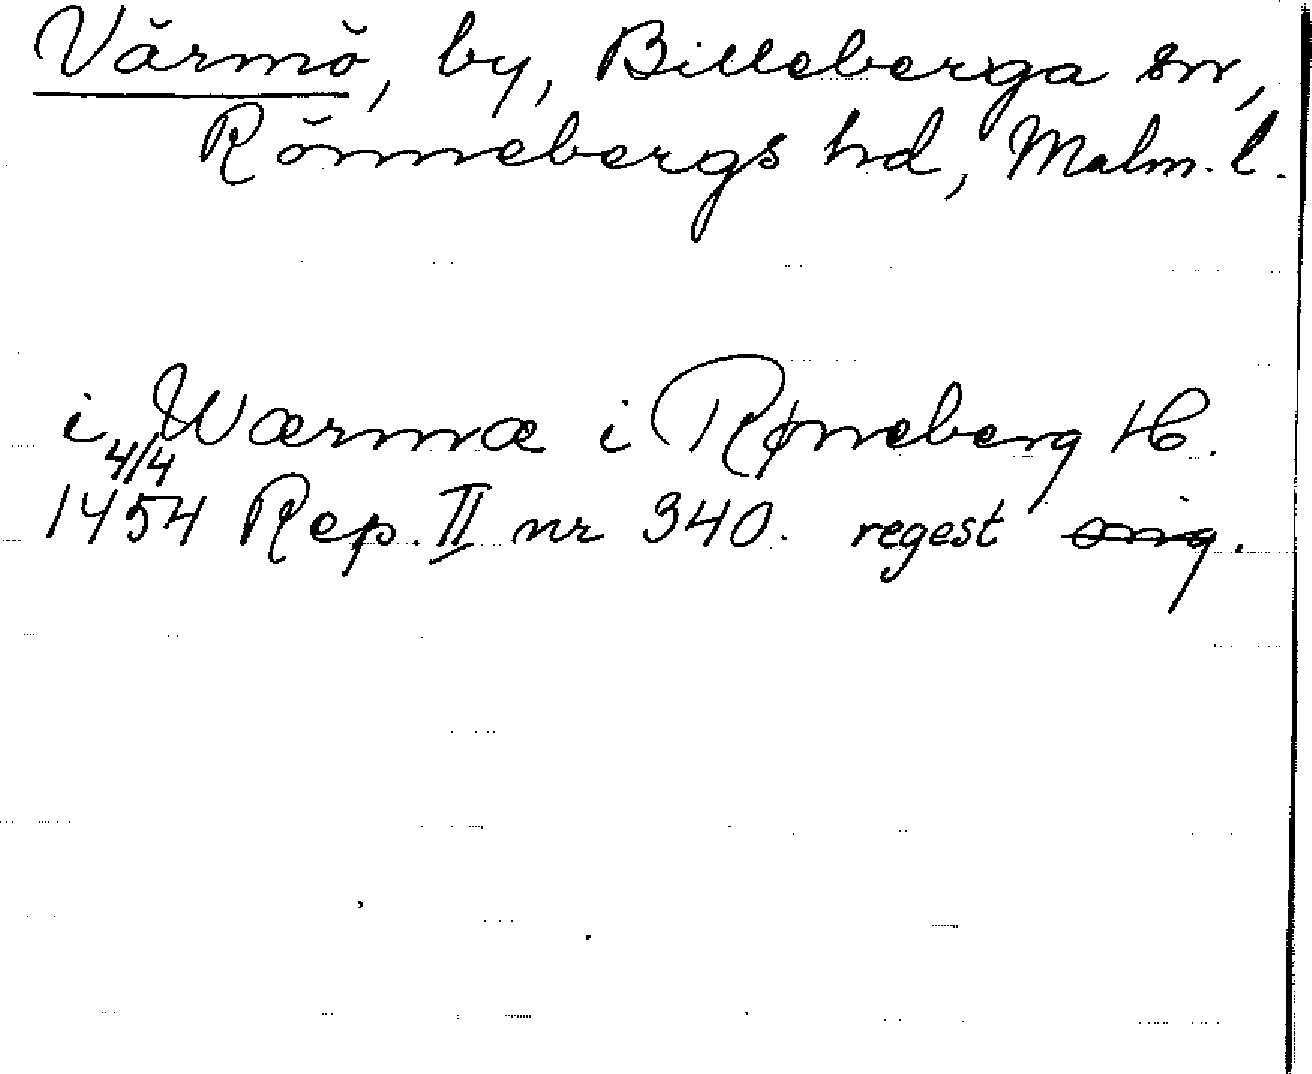 Värmö, by, Billeberga sn,
Rönnebergs hd, Malm. l.
i Wærmæ i Røneberg H.
4/4
1454 Rep. II nr 340. regest